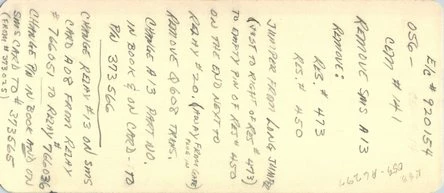 E/C # 920154
056-
COM # 141
REMOVE SMS A13
REMOVE:
RES. # 473
RES. # 450
JUMPER FROM LONG JUMPER
(NEXT TO RIGHT OF RES # 473)
TO EMPTY PIN OF RES # 450
ON THE END NEXT TO
RELAY # 20. (AWAY FROM CARD
REMOVE Q608 TRANS.
CHANGE A13 PART NO.
IN BOOK & ON CARD - TO
P/N 373566
CHANGE RELAY #13 ON SMS
CARD A08 FROM RELAY
# 766051 TO RELAY # 766036
CHANGE P/N IN BOOK AND ON
SMS CARD TO # 373565
(FROM # 373025)